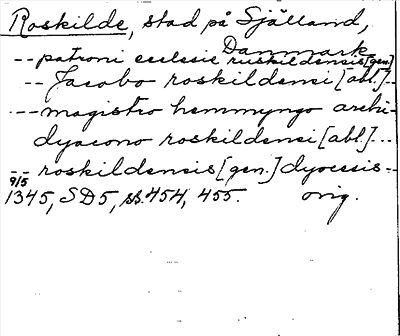 Roskilde, stad på Själland,
Danmark
-- patroni ecclesie ruskildensis [gen.]
-- Jacobo roskildensi [abl.]--
--- magistro hemmyngo archi-
dyacono roskildensi [abl.]---
-- roskildensis [gen.] dyocesis --
9/5
1345, SD5, ss. 454, 455. orig.